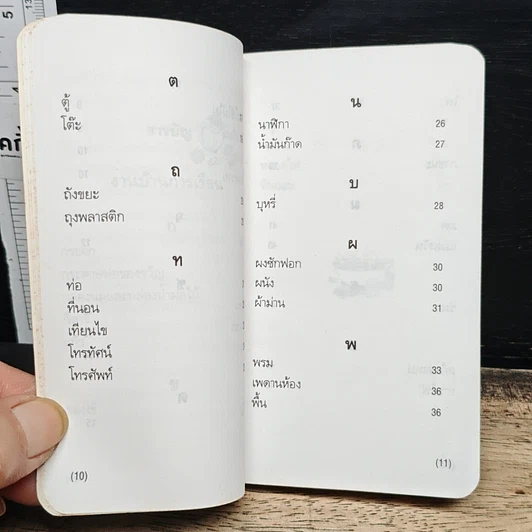 ต
ตู้
โต๊ะ
ถ
ถังขยะ
ถุงพลาสติก
ท
ท่อ
ที่นอน
เทียนไข
โทรทัศน์
โทรศัพท์
(10)
น
นาฬิกา 26
น้ำมันก๊าด 27
บ
บุหรี่ 28
ผ
ผงซักฟอก 30
ผนัง 30
ผ้าม่าน 31
พ
พรม 33
เพดานห้อง 36
พื้น 36
(11)